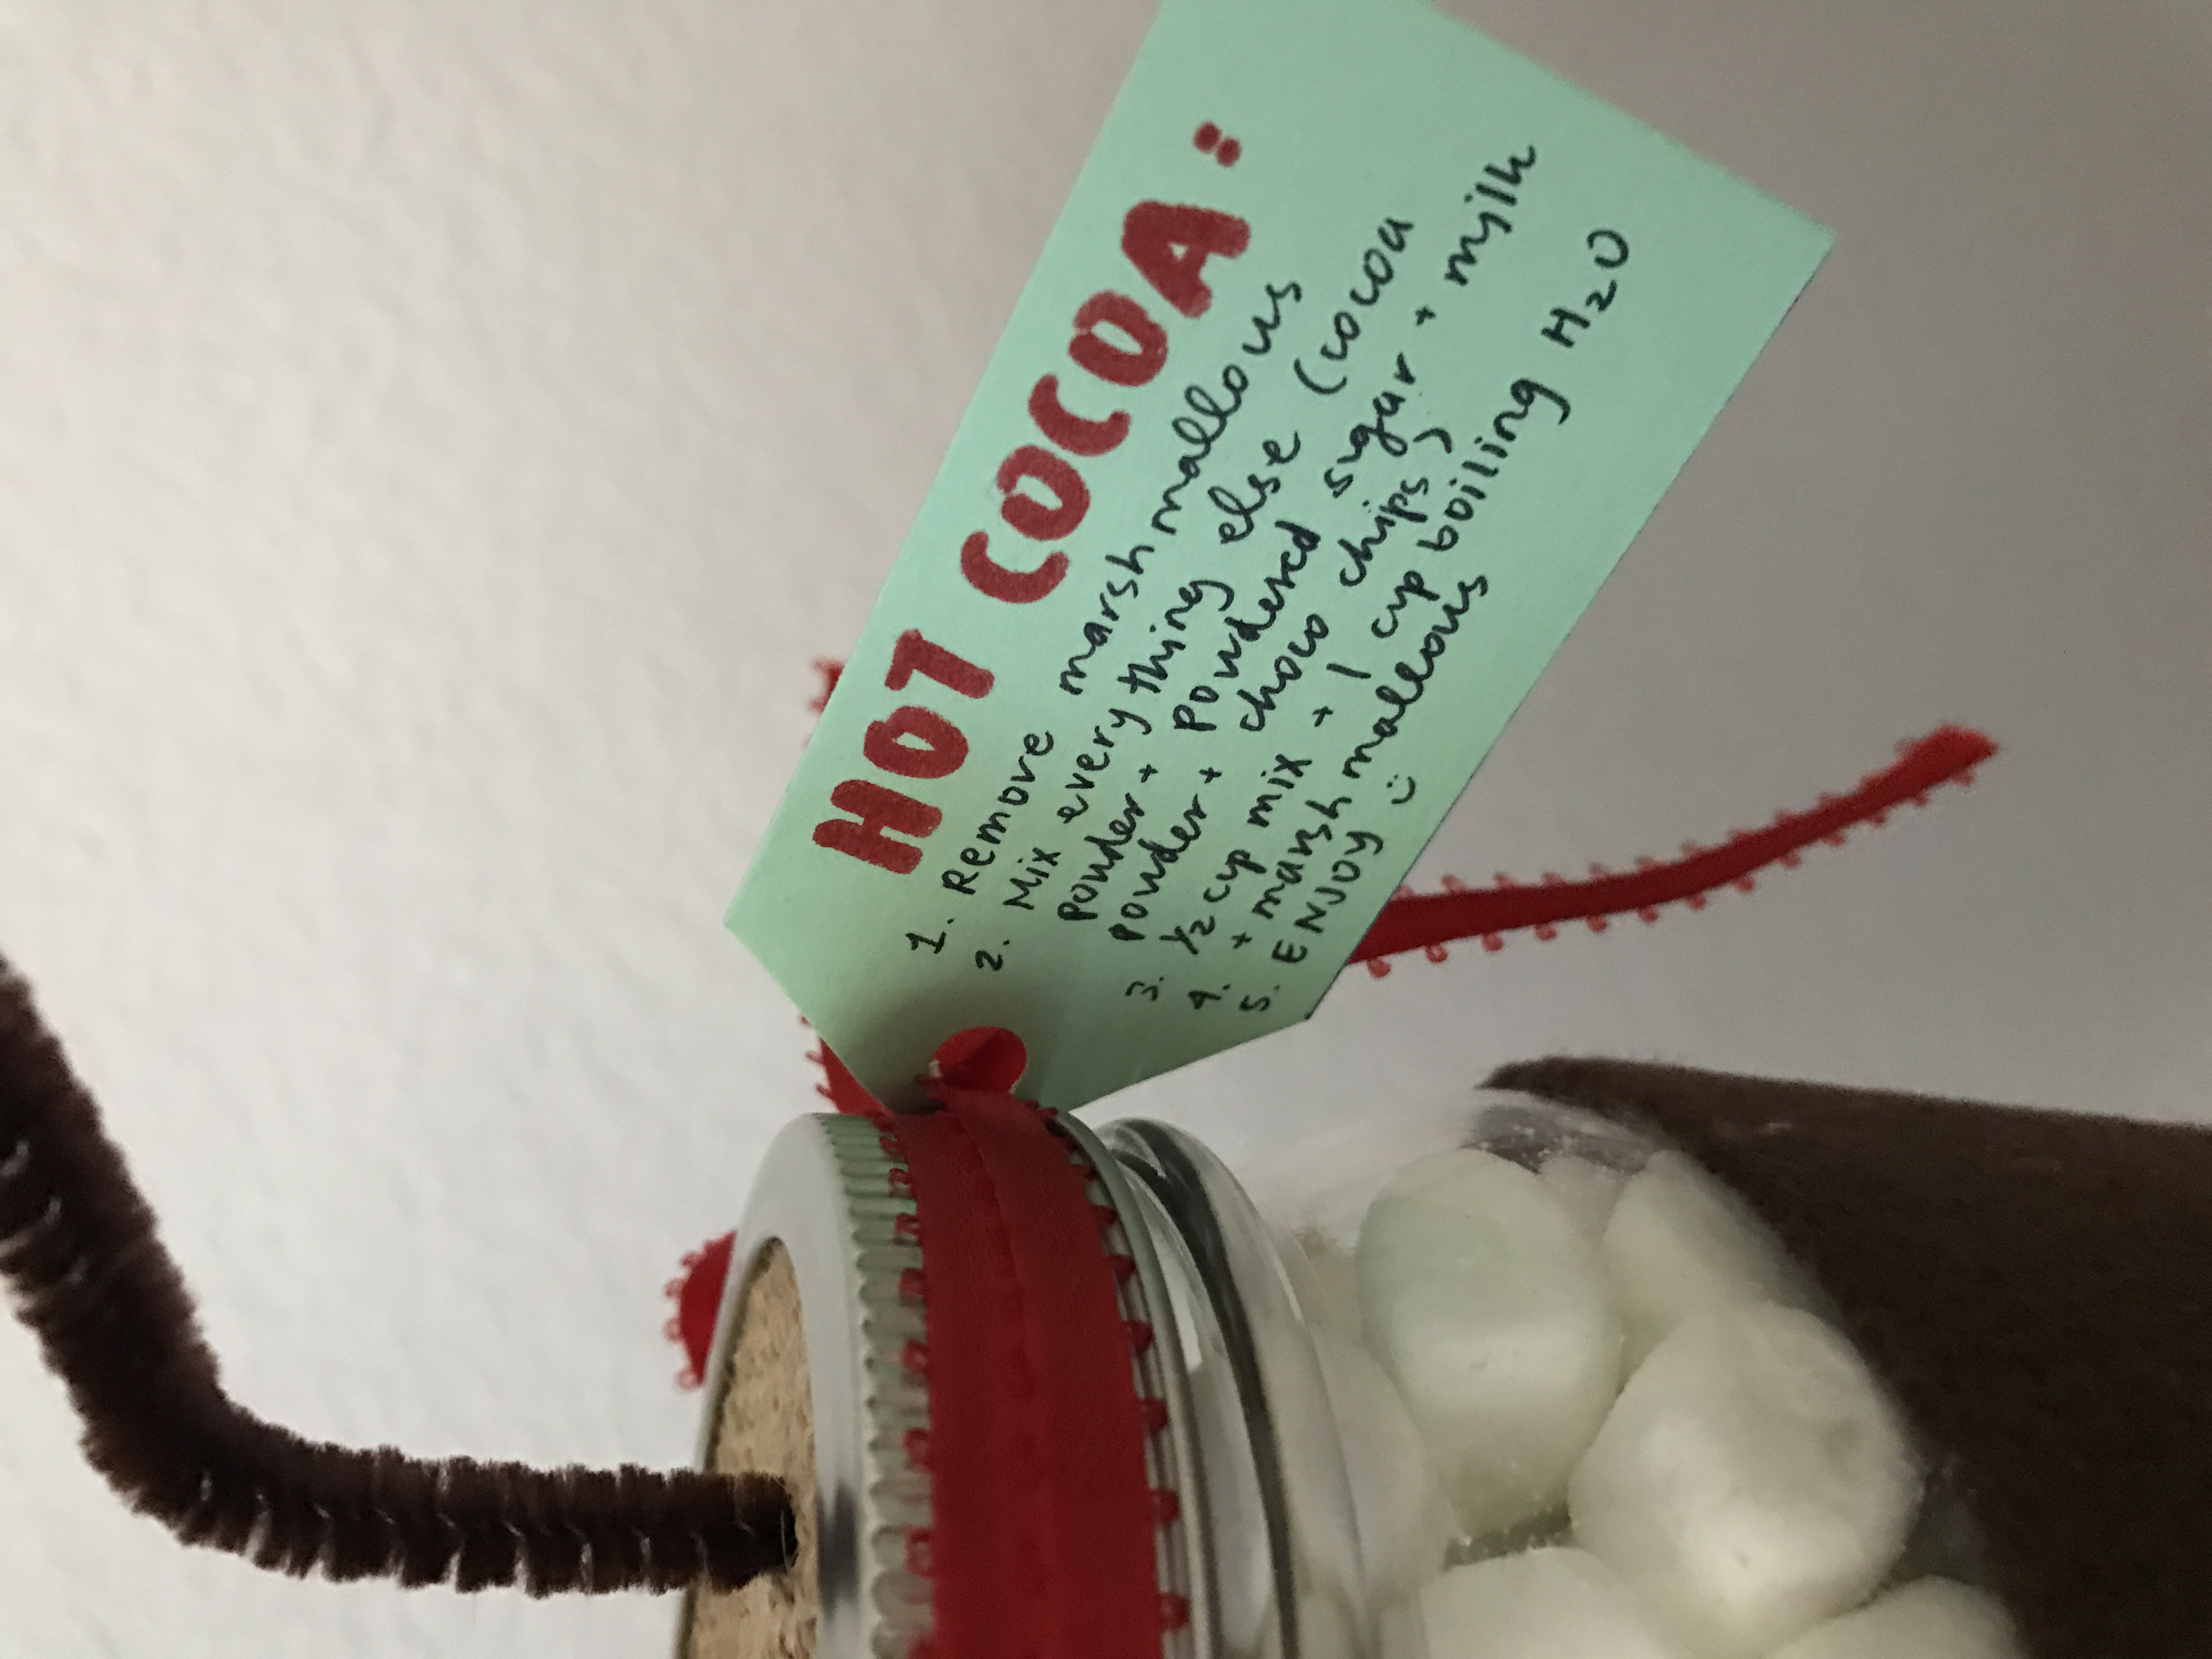 HOT COCOA:
1. Remove marshmallows
2. Mix everything else (cocoa
powder + powdered sugar + milk
powder + choco chips)
3. 1/2 cup mix + 1 cup boiling H₂O
4. + marshmallows
5. ENJOY :)